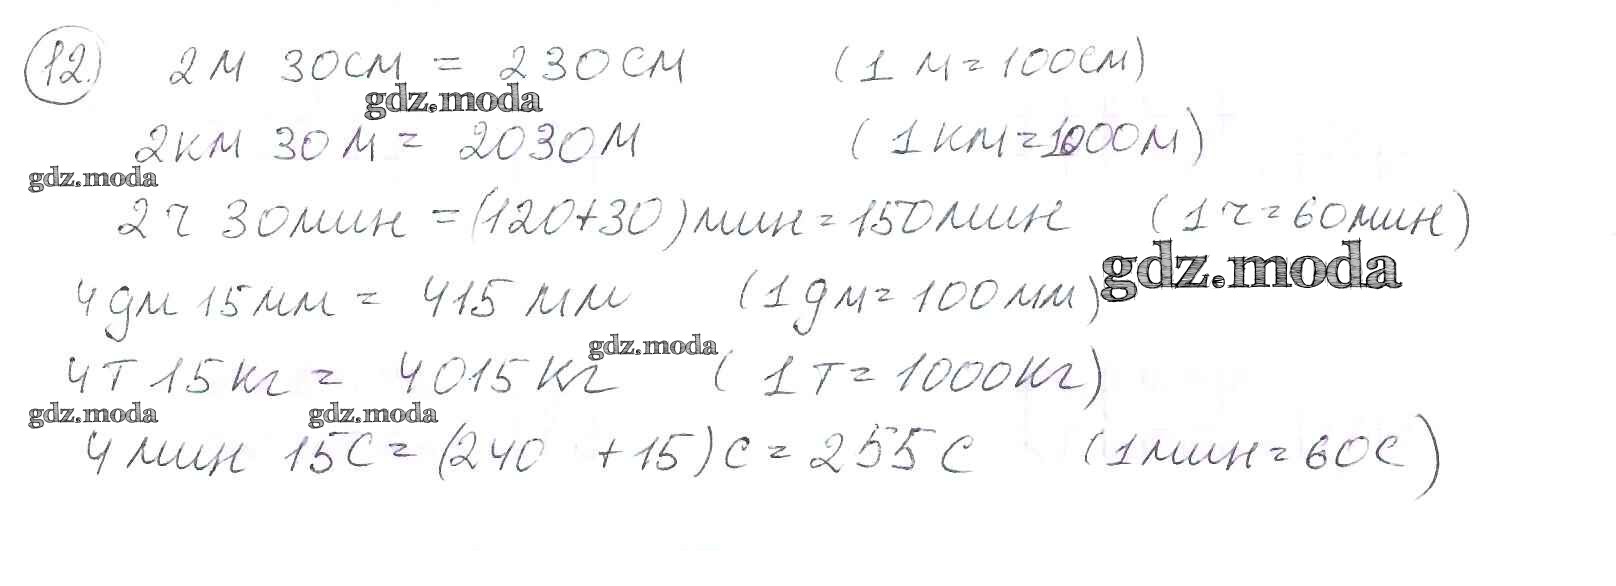 12. 2 м 30см = 230см (1 м = 100см)
gdz.moda
2км 30м = 2030м (1км = 1000м)
gdz.moda
2ч 30мин = (120+30)мин = 150мин (1ч = 60мин)
gdz.moda
4дм 15мм = 415мм (1дм = 100мм)
gdz.moda
4т 15кг = 4015кг (1т = 1000кг)
gdz.moda gdz.moda
4мин 15с = (240 + 15)с = 255с (1мин = 60с)